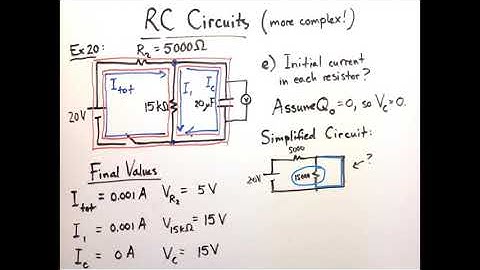 RC Circuits (more complex!)
Ex 20: R₂ = 5000Ω
I_tot
I₁
I_c
15kΩ
20μF
V
20V
e) Initial current
in each resistor?
Assume Q₀ = 0, so V_c = 0.
Simplified Circuit:
5000
20V
15000
?
Final Values
I_tot = 0.001 A V_R₂ = 5V
I₁ = 0.001 A V_15kΩ = 15V
I_c = 0A V_c = 15V